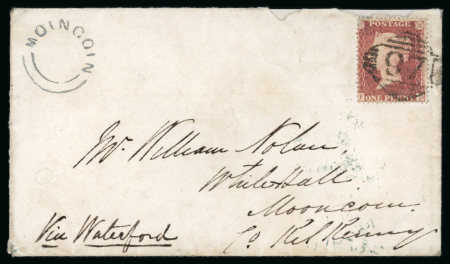 MOINCOIN
POSTAGE
ONE PENNY
Mr. William Nolan,
White Hall
Mooncoin.
Via Waterford
Co Kilkenny